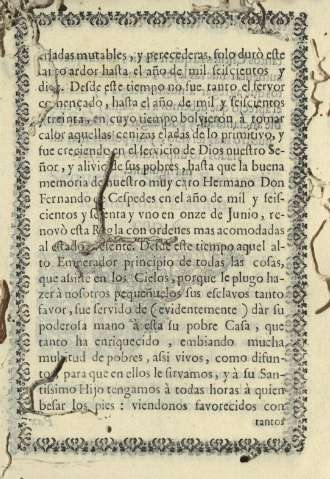 criadas mutables, y perecederas, solo durò este
ardor hasta el año de mil seiscientos y
diez. Desde este tiempo no fue tanto el fervor
començado, hasta el año de mil y seiscientos
y treinta, en cuyo tiempo bolvieron à tomar
calor aquellas cenizas eladas de lo primitivo, y
fue creciendo en el servicio de Dios nuestro Se-
ñor, y alivio de sus pobres, hasta que la buena
memoria de nuestro muy caro Hermano Don
Fernando de Cespedes en el año de mil y seis-
cientos y setenta y vno en onze de Junio, re-
novò esta Regla con ordenes mas acomodadas
al estado presente. Desde este tiempo aquel al-
to Emperador principio de todas las cosas,
que assiste en los Cielos, porque le plugo ha-
zer à nosotros pequeñuelos sus esclavos tanto
favor, fue servido de (evidentemente) dar su
poderosa mano à esta su pobre Casa, que
tanto ha enriquecido, embiando mucha
multitud de pobres, assi vivos, como difun-
tos, para que en ellos le sirvamos, y à su San-
tissimo Hijo tengamos à todas horas à quien
besar los pies: viendonos favorecidos con
tantos